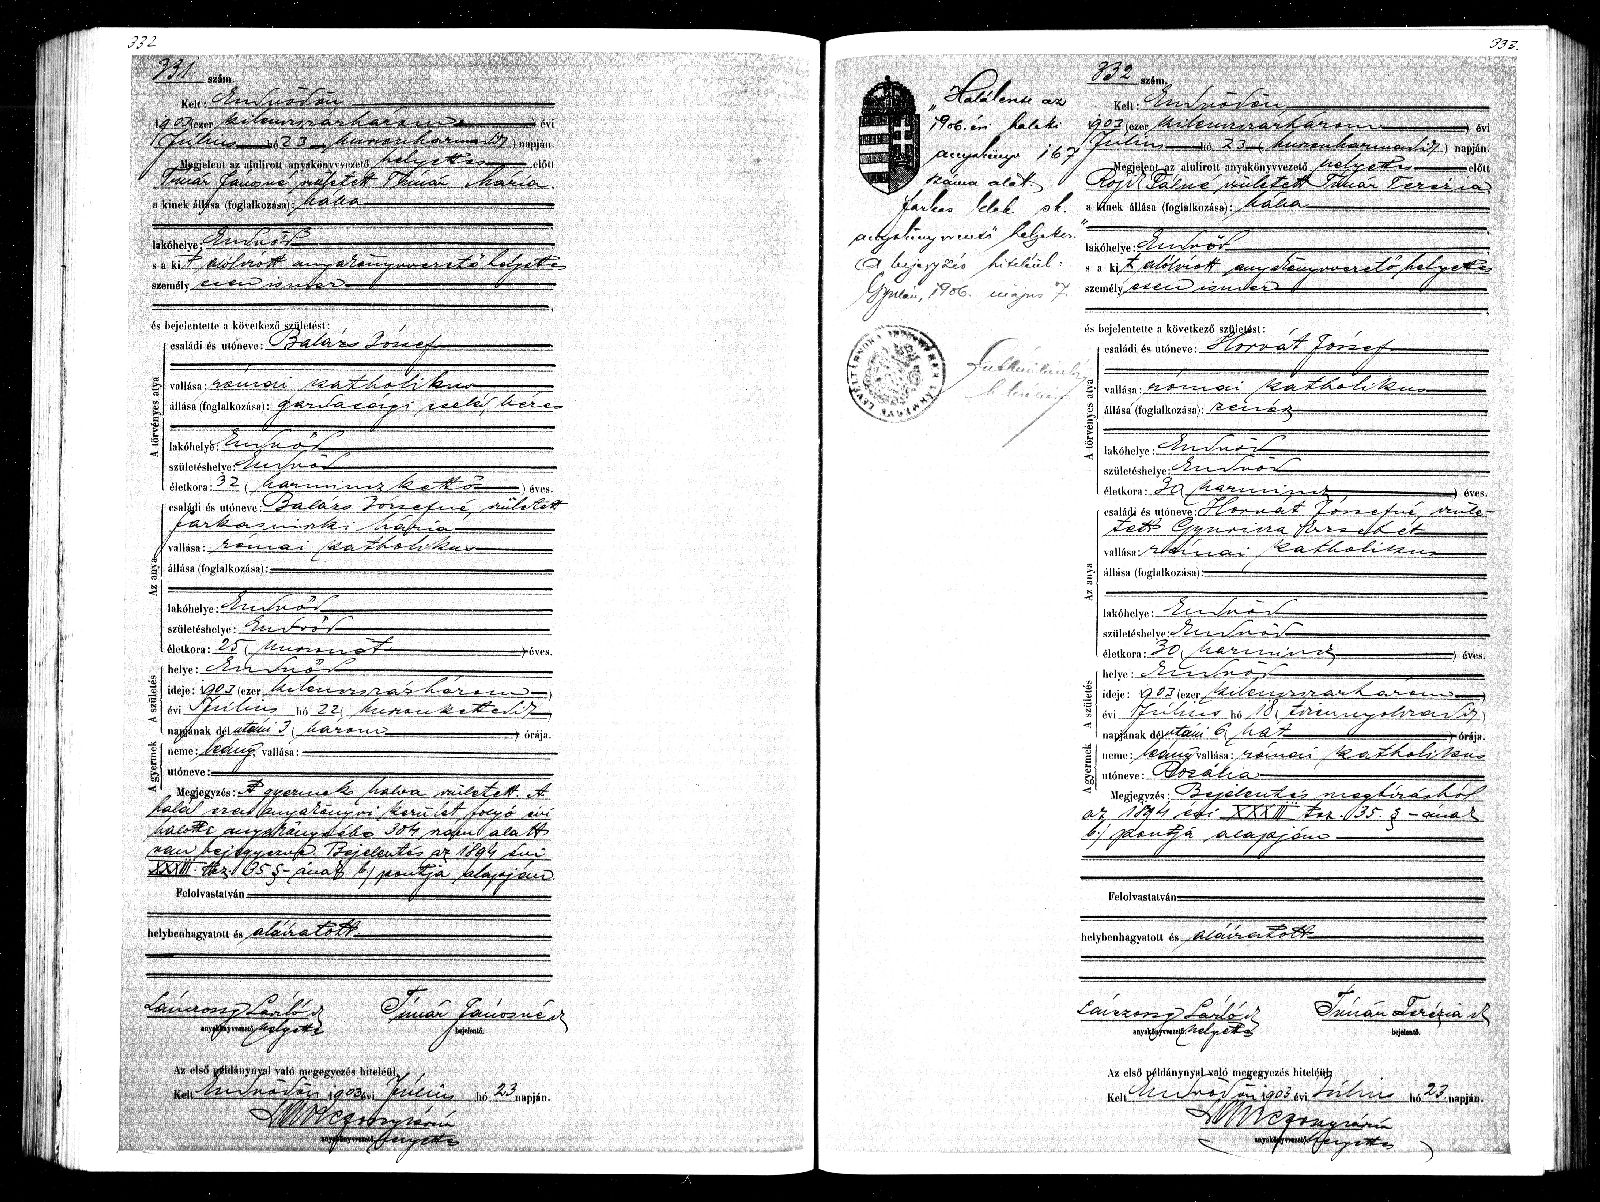 332
331 szám.
Kelt: Endrődön
1903 (ezer kilenczszázhárom) évi
Július hó 23 (huszonharmadik) napján.
Megjelent az alulirott anyakönyvvezető helyettes előtt
Timár Jánosné született Timár Mária
a kinek állása (foglalkozása): bába
lakóhelye: Endrőd
s a kit alólirott anyakönyvvezető helyettes
személyesen ismer
és bejelentette a következő születést:
A törvényes atya
családi és utóneve: Balázs József
vallása: római katholikus
állása (foglalkozása): gazdasági cseléd, béres
lakóhelye: Endrőd
születéshelye: Endrőd
életkora: 32 (harminczkettő) éves.
Az anya
családi és utóneve: Balázs Józsefné, született
Farkasinszki Mária
vallása: római katholikus
állása (foglalkozása):
lakóhelye: Endrőd
születéshelye: Endrőd
életkora: 25 (huszonöt) éves.
A születés
helye: Endrőd
ideje: 1903 (ezer kilenczszázhárom)
évi Július hó 22 (huszonkettedik)
napjának délutáni 3 (három) órája.
A gyermek
neme: leány, vallása:
utóneve:
Megjegyzés: A gyermek halva született. A
halál ezen anyakönyvi kerület folyó évi
halotti anyakönyvébe 304 szám alatt
van bejegyezve. Bejelentés az 1894 évi
XXXIII. tcz. 35 §-ának b) pontja alapján
Felolvastatván
helybenhagyatott és aláiratott
László sk
anyakönyvvezető helyettes
Timár Jánosné sk
bejelentő.
Az első példánynyal való megegyezés hiteléül,
Kelt Endrődön 1903 évi Július hó 23 napján.
anyakönyvvezető helyettes
333.
„Halálesete az
1906. évi haláli
anyakönyv 167
száma alatt.
Farkas Elek sk.
anyakönyvvezető helyettes."
A bejegyzés hiteléül:
Gyulán, 1906. május 7.
332 szám.
Kelt: Endrődön
1903 (ezer kilenczszázhárom) évi
Július hó 23 (huszonharmadik) napján.
Megjelent az alulirott anyakönyvvezető helyettes előtt
Rojik Pálné született Timár Terézia
a kinek állása (foglalkozása): bába
lakóhelye: Endrőd
s a kit alólirott anyakönyvvezető helyettes
személyesen ismer
és bejelentette a következő születést:
A törvényes atya
családi és utóneve: Horvát József
vallása: római katholikus
állása (foglalkozása):
lakóhelye: Endrőd
születéshelye: Endrőd
életkora: 30 (harmincz) éves.
Az anya
családi és utóneve: Horvát Józsefné, szüle-
tett Gyuricza Erzsébet
vallása: római katholikus
állása (foglalkozása):
lakóhelye: Endrőd
születéshelye: Endrőd
életkora: 30 (harmincz) éves.
A születés
helye: Endrőd
ideje: 1903 (ezer kilenczszázhárom)
évi Július hó 18 (tizennyolczadik)
napjának délutáni 6 (hat) órája.
A gyermek
neme: leány vallása: római katholikus
utóneve: Rozália
Megjegyzés: Bejelentés megbizásból
az 1894 évi XXXIII tcz. 35. §-ának
b) pontja alapján
Felolvastatván
helybenhagyatott és aláiratott
László sk
anyakönyvvezető helyettes
Timár Terézia sk
bejelentő.
Az első példánynyal való megegyezés hiteléül,
Kelt Endrődön 1903 évi Július hó 23 napján.
anyakönyvvezető helyettes